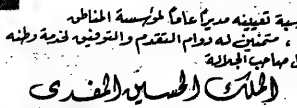 سبة تعيينه مديراً عاماً لمؤسسة المناطق
، متمنين له دوام التقدم والتوفيق لخدمة وطنه
صاحب الجلالة
الملك الحسين المفدى